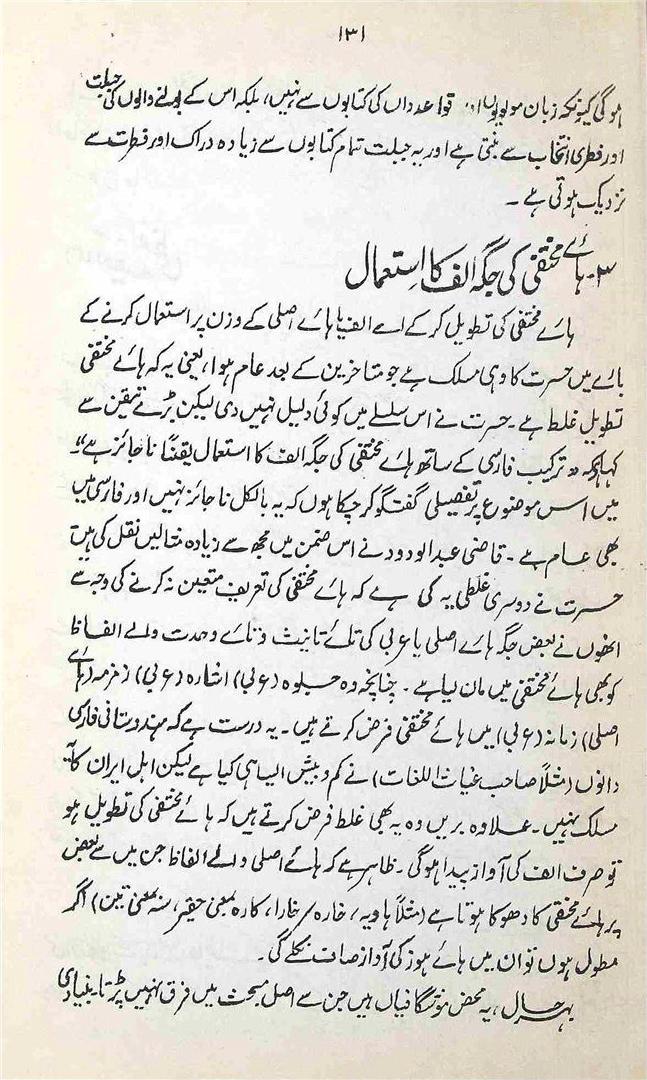 ۱۳۱
ہوگی کیونکہ زبان مولویوں اور قواعد داں کی کتابوں سے نہیں، بلکہ اس کے بولنے والوں کی جبلت
اور فطری انتخاب سے بنتی ہے اور یہ جبلت تمام کتابوں سے زیادہ دراک اور فطرت سے
نزدیک ہوتی ہے۔
۳۔ ہائے مختفی کی جگہ الف کا استعمال
ہائے مختفی کی تطویل کرکے اسے الف یا ہائے اصلی کے وزن پر استعمال کرنے کے
بارے میں حسرت کا وہی مسلک ہے جو متاخرین کے بعد عام ہوا، یعنی یہ کہ ہائے مختفی کی
تطویل غلط ہے۔ حسرت نے اس سلسلے میں کوئی دلیل نہیں دی لیکن بڑے تیقن سے
کہا ہے کہ "ترکیب فارسی کے ساتھ ہائے مختفی کی جگہ الف کا استعمال یقیناً ناجائز ہے"۔
میں اس موضوع پر تفصیلی گفتگو کر چکا ہوں کہ یہ بالکل ناجائز نہیں اور فارسی میں
بھی عام ہے۔ قاضی عبدالودود نے اس ضمن میں مجھ سے زیادہ مثالیں نقل کی ہیں
حسرت نے دوسری غلطی یہ کی ہے کہ ہائے مختفی کی تعریف متعین نہ کرنے کی وجہ سے
انھوں نے بعض جگہ ہائے اصلی یا عربی کی تائے تانیث و تائے وحدت والے الفاظ
کو بھی ہائے مختفی میں مان لیا ہے۔ چنانچہ وہ جلوہ (عربی) اشارہ (عربی) زمزمہ (ہائے
اصلی) زمانہ (عربی) میں ہائے مختفی فرض کرتے ہیں۔ یہ درست ہے کہ ہندوستانی فارسی
دانوں (مثلاً صاحب غیاث اللغات) نے کم و بیش ایسا ہی کیا ہے لیکن اہل ایران کا یہ
مسلک نہیں۔ علاوہ بریں وہ یہ بھی غلط فرض کرتے ہیں کہ ہائے مختفی کی تطویل ہو
تو صرف الف کی آواز پیدا ہوگی۔ ظاہر ہے کہ ہائے اصلی والے الفاظ جن میں سے بعض
پر ہائے مختفی کا دھوکا ہوتا ہے (مثلاً ہاویہ، خارہ/خارا، کارہ بمعنی حقیر، سہ بمعنی تین) اگر
مطول ہوں تو ان میں ہائے ہوز کی آواز صاف نکلے گی۔
بہرحال، یہ محض موشگافیاں ہیں جن سے اصل مبحث میں فرق نہیں پڑتا۔ بنیادی